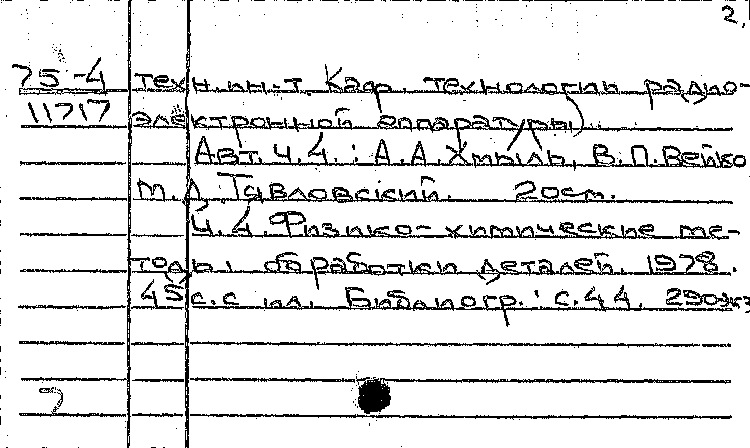 2.
75-4 техн. ин-т. Каф. технологии радио-
11717 электронной аппаратуры)
Авт. ч. 4. : А. А. Хмыль, В. П. Вейко
Ч. 4. Физико-химические ме-
тоды обработки деталей. 1978.
45 с. с ил. Библиогр.: с. 44. 290экз